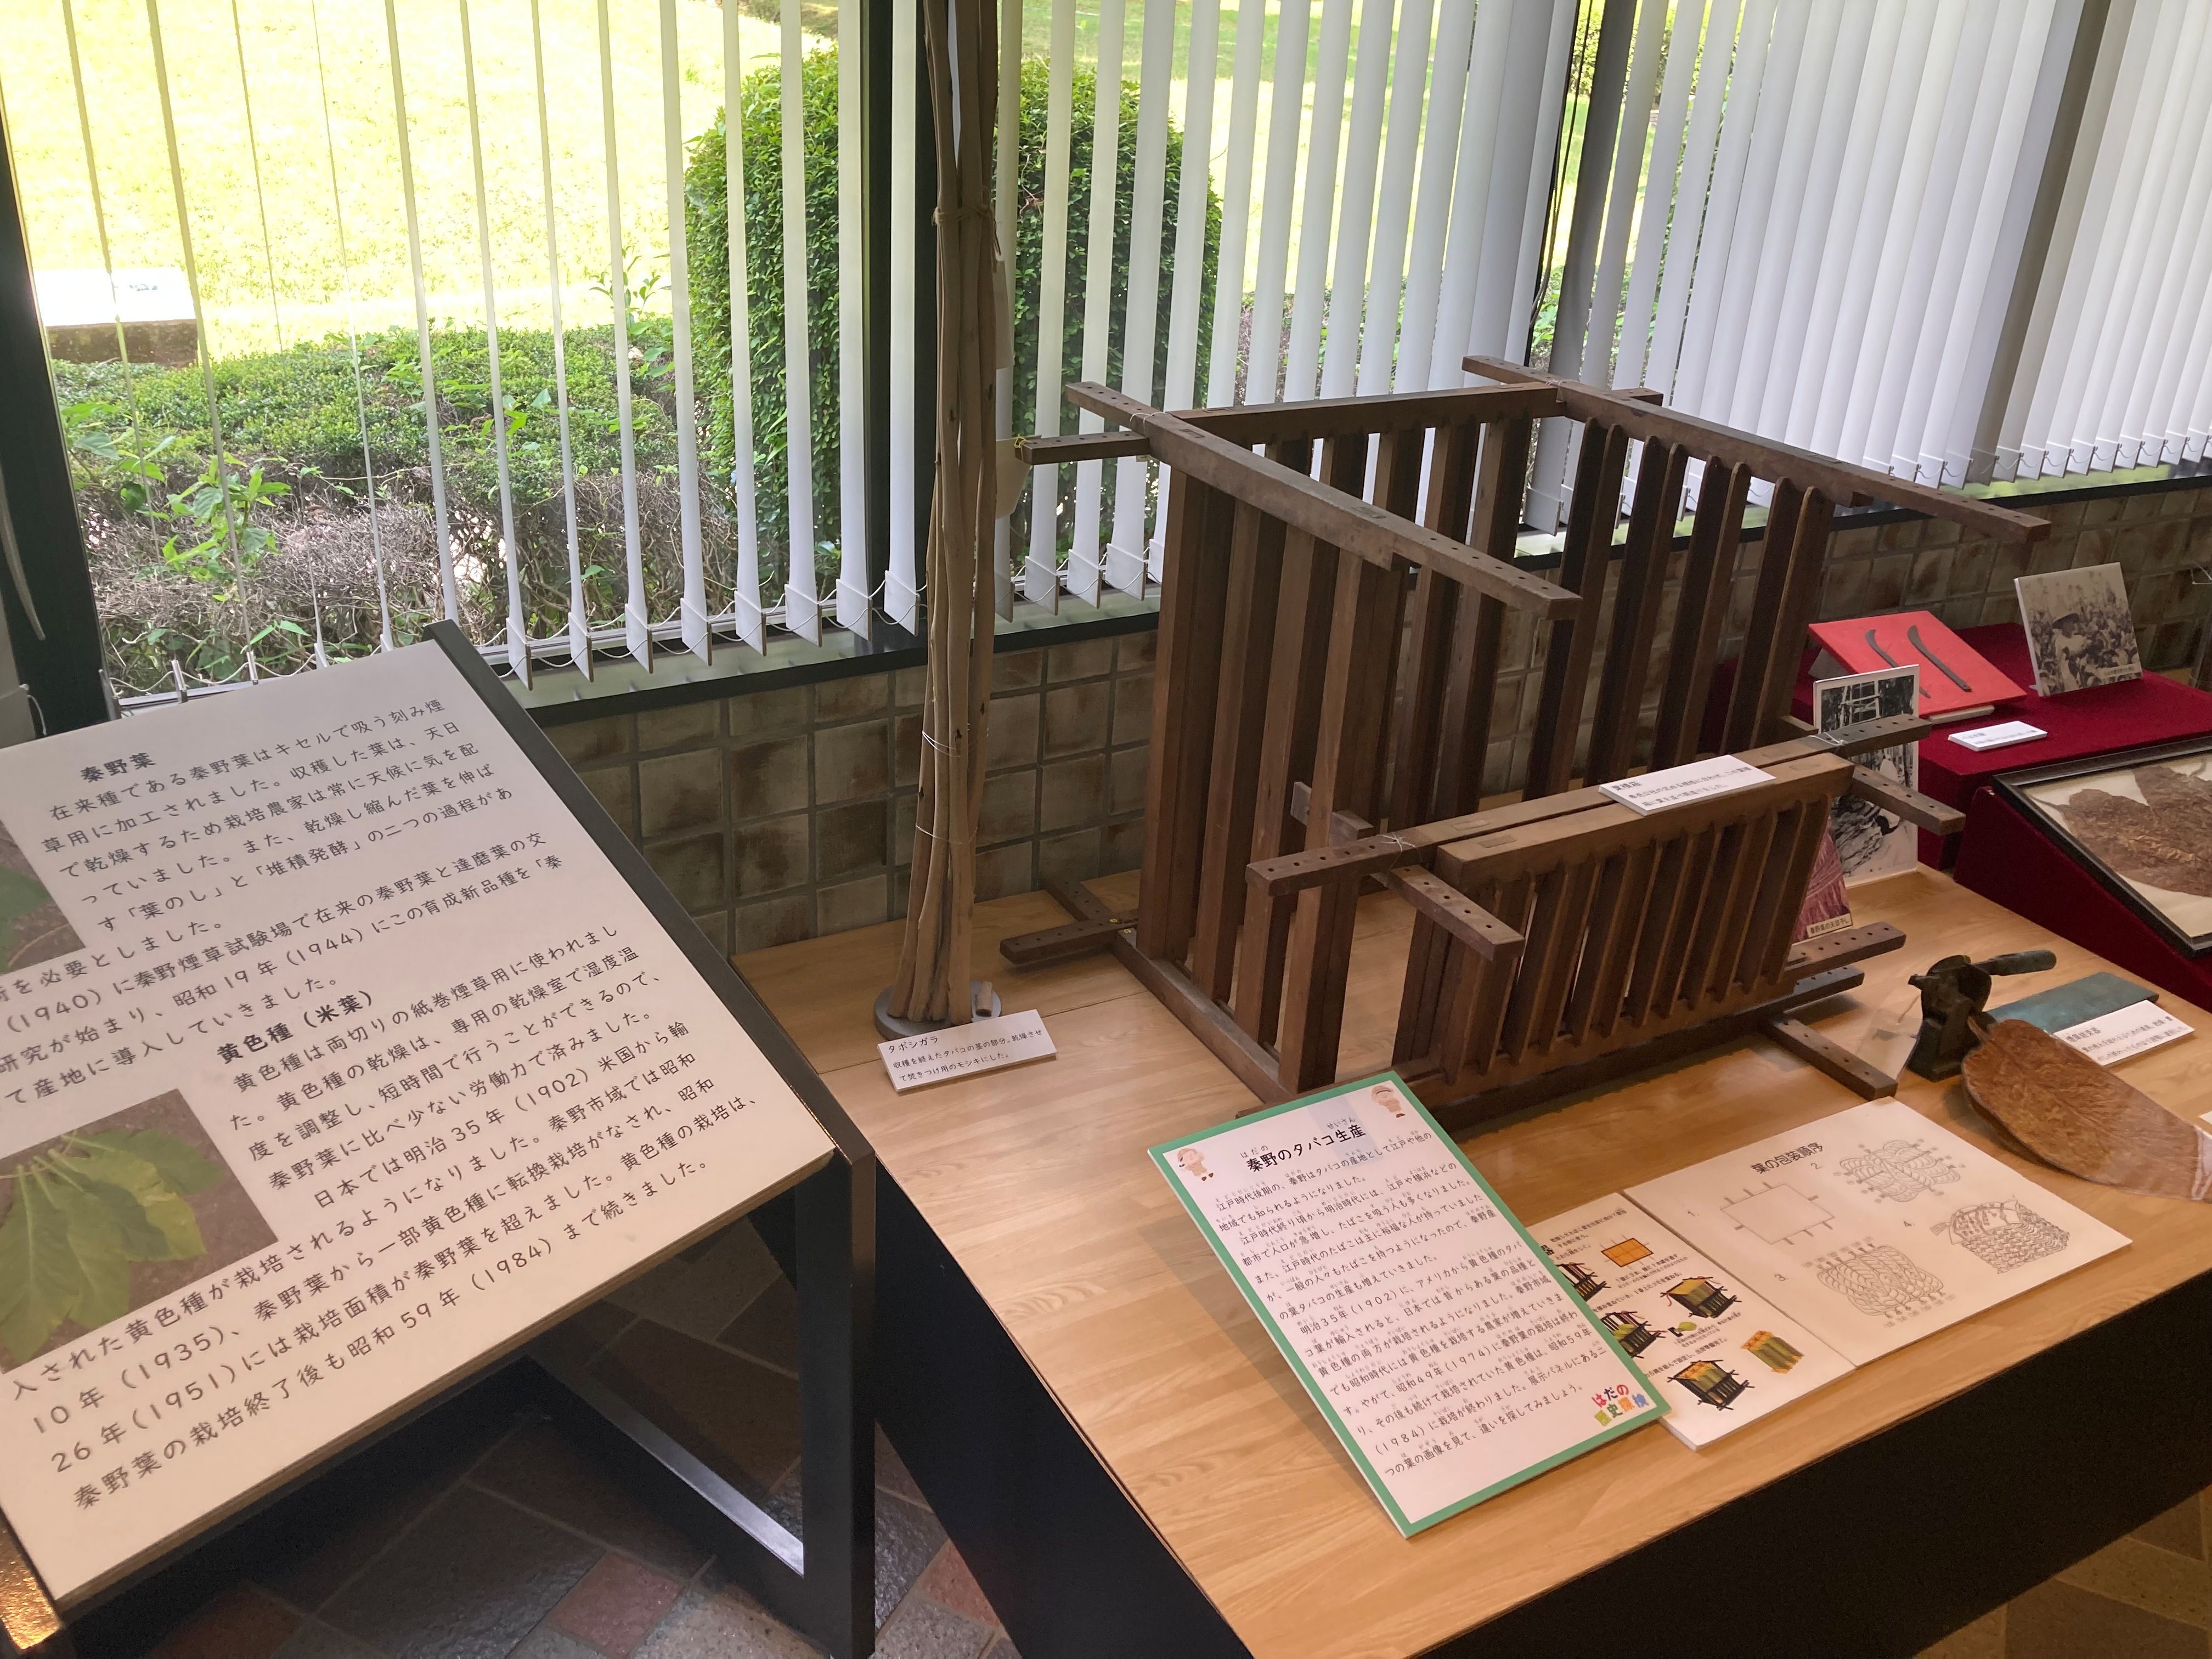 秦野葉
在来種である秦野葉はキセルで吸う刻み煙
草用に加工されました。収穫した葉は、天日
で乾燥するため栽培農家は常に天候に気を配
っていました。また、乾燥し縮んだ葉を伸ば
す「葉のし」と「堆積発酵」の二つの過程があ
を必要としました。
(1940)に秦野煙草試験場で在来の秦野葉と達磨葉の交
研究が始まり、昭和19年(1944)にこの育成新品種を「秦
て産地に導入していきました。
黄色種(米葉)
黄色種は両切りの紙巻煙草用に使われまし
た。黄色種の乾燥は、専用の乾燥室で湿度温
度を調整し、短時間で行うことができるので、
秦野葉に比べ少ない労働力で済みました。
日本では明治35年(1902)米国から輸
入された黄色種が栽培されるようになりました。秦野市域では昭和
10年(1935)、秦野葉から一部黄色種に転換栽培がなされ、昭和
26年(1951)には栽培面積が秦野葉を超えました。黄色種の栽培は、
秦野葉の栽培終了後も昭和59年(1984)まで続きました。
タボシガラ
収穫を終えたタバコの茎の部分。乾燥させ
て焚きつけ用のモシキにした。
はだの せいさん
秦野のタバコ生産
江戸時代後期の、秦野はタバコの産地として江戸や他の
地域でも知られるようになりました。
江戸時代終り頃から明治時代には、江戸や横浜などの
都市で人口が急増し、たばこを吸う人も多くなりました。
また、江戸時代のたばこは主に裕福な人が持っていました
が、一般の人々もたばこを持つようになったので、秦野産
の葉タバコの生産も増えていきました。
明治35年(1902)に、アメリカから黄色種のタバ
コ葉が輸入されると、日本では昔からある葉の品種と
黄色種の両方が栽培されるようになりました。秦野市域
でも昭和時代には黄色種を栽培する農家が増えていきま
す。やがて、昭和49年(1974)に秦野葉の栽培は終わ
り、その後も続けて栽培されていた黄色種は、昭和59年
(1984)に栽培が終わりました。展示パネルにある二
つの葉の画像を見て、違いを探してみましょう。
はだの
歴史探検
葉の包装順序
1.
2.
3.
4.